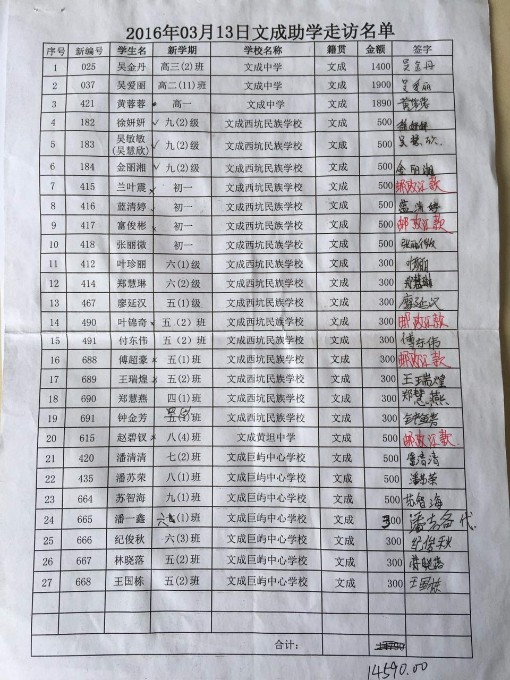 2016年03月13日文成助学走访名单
序号 新编号 学生名 新学期 学校名称 籍贯 金额 签字
1 025 吴金丹 高三(2)班 文成中学 文成 1400 吴金丹
2 037 吴爱丽 高二(11)班 文成中学 文成 1900 吴爱丽
3 421 黄蓉蓉 高一 文成中学 文成 1890 黄蓉蓉
4 182 徐妍妍 九(2)级 文成西坑民族学校 文成 500
5 183 吴敏敏(吴慧欣) 九(2)级 文成西坑民族学校 文成 500 吴慧欣
6 184 金丽湘 九(2)级 文成西坑民族学校 文成 500 金丽湘
7 415 兰叶震 初一 文成西坑民族学校 文成 500 邮政汇款
8 416 蓝清婷 初一 文成西坑民族学校 文成 500 蓝清婷
9 417 富俊彬 初一 文成西坑民族学校 文成 500 邮政汇款
10 418 张丽微 初一 文成西坑民族学校 文成 500 张丽微
11 412 叶珍丽 六(1)级 文成西坑民族学校 文成 300
12 414 郑慧琳 六(2)级 文成西坑民族学校 文成 300 郑慧琳
13 467 廖延汉 五(1)级 文成西坑民族学校 文成 300 廖延汉
14 490 叶锦奇 五（2）班 文成西坑民族学校 文成 300 邮政汇款
15 491 付东伟 五（2）班 文成西坑民族学校 文成 300 傅东伟
16 688 傅超豪 五(1)班 文成西坑民族学校 文成 300 邮政汇款
17 689 王瑞煌 五(2)班 文成西坑民族学校 文成 300 王瑞煌
18 690 郑慧燕 四(1)班 文成西坑民族学校 文成 300 郑慧燕
19 691 钟金芳 班 文成西坑民族学校 文成 300
20 615 赵碧钗 八(4)班 文成黄坦中学 文成 500 邮政汇款
21 420 潘清清 七(2)班 文成巨屿中心学校 文成 500 潘清清
22 435 潘苏荣 八(1)班 文成巨屿中心学校 文成 500 潘苏荣
23 664 苏智海 九(1)班 文成巨屿中心学校 文成 500 苏智海
24 665 潘一鑫 六(1)班 文成巨屿中心学校 文成 300
25 666 纪俊秋 六(3)班 文成巨屿中心学校 文成 300 纪俊秋
26 667 林晓落 五(2)班 文成巨屿中心学校 文成 300
27 668 王国栋 五(2)班 文成巨屿中心学校 文成 300 王国栋
合计：
14590.00